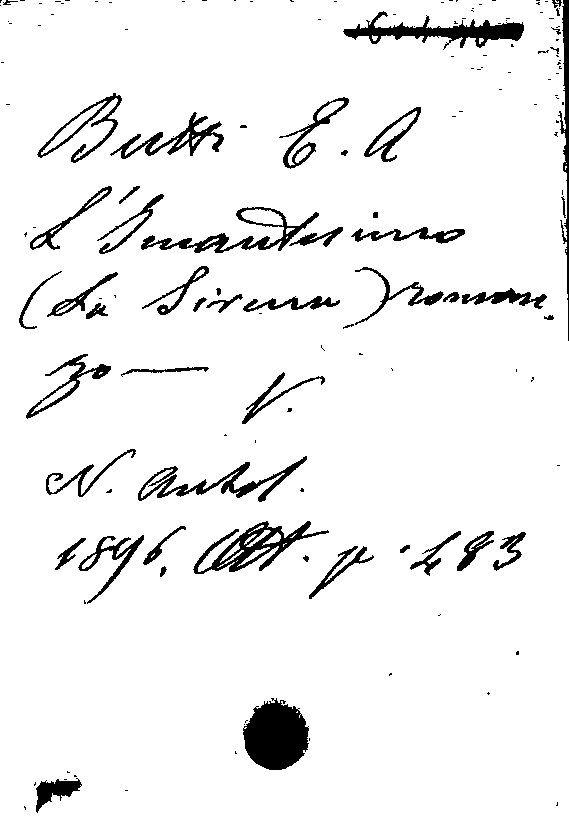 Butti E. A
L'Incantesimo
(La Sirena) roman.
zo —
V.
N. Antol.
1896, Ott. p. 483